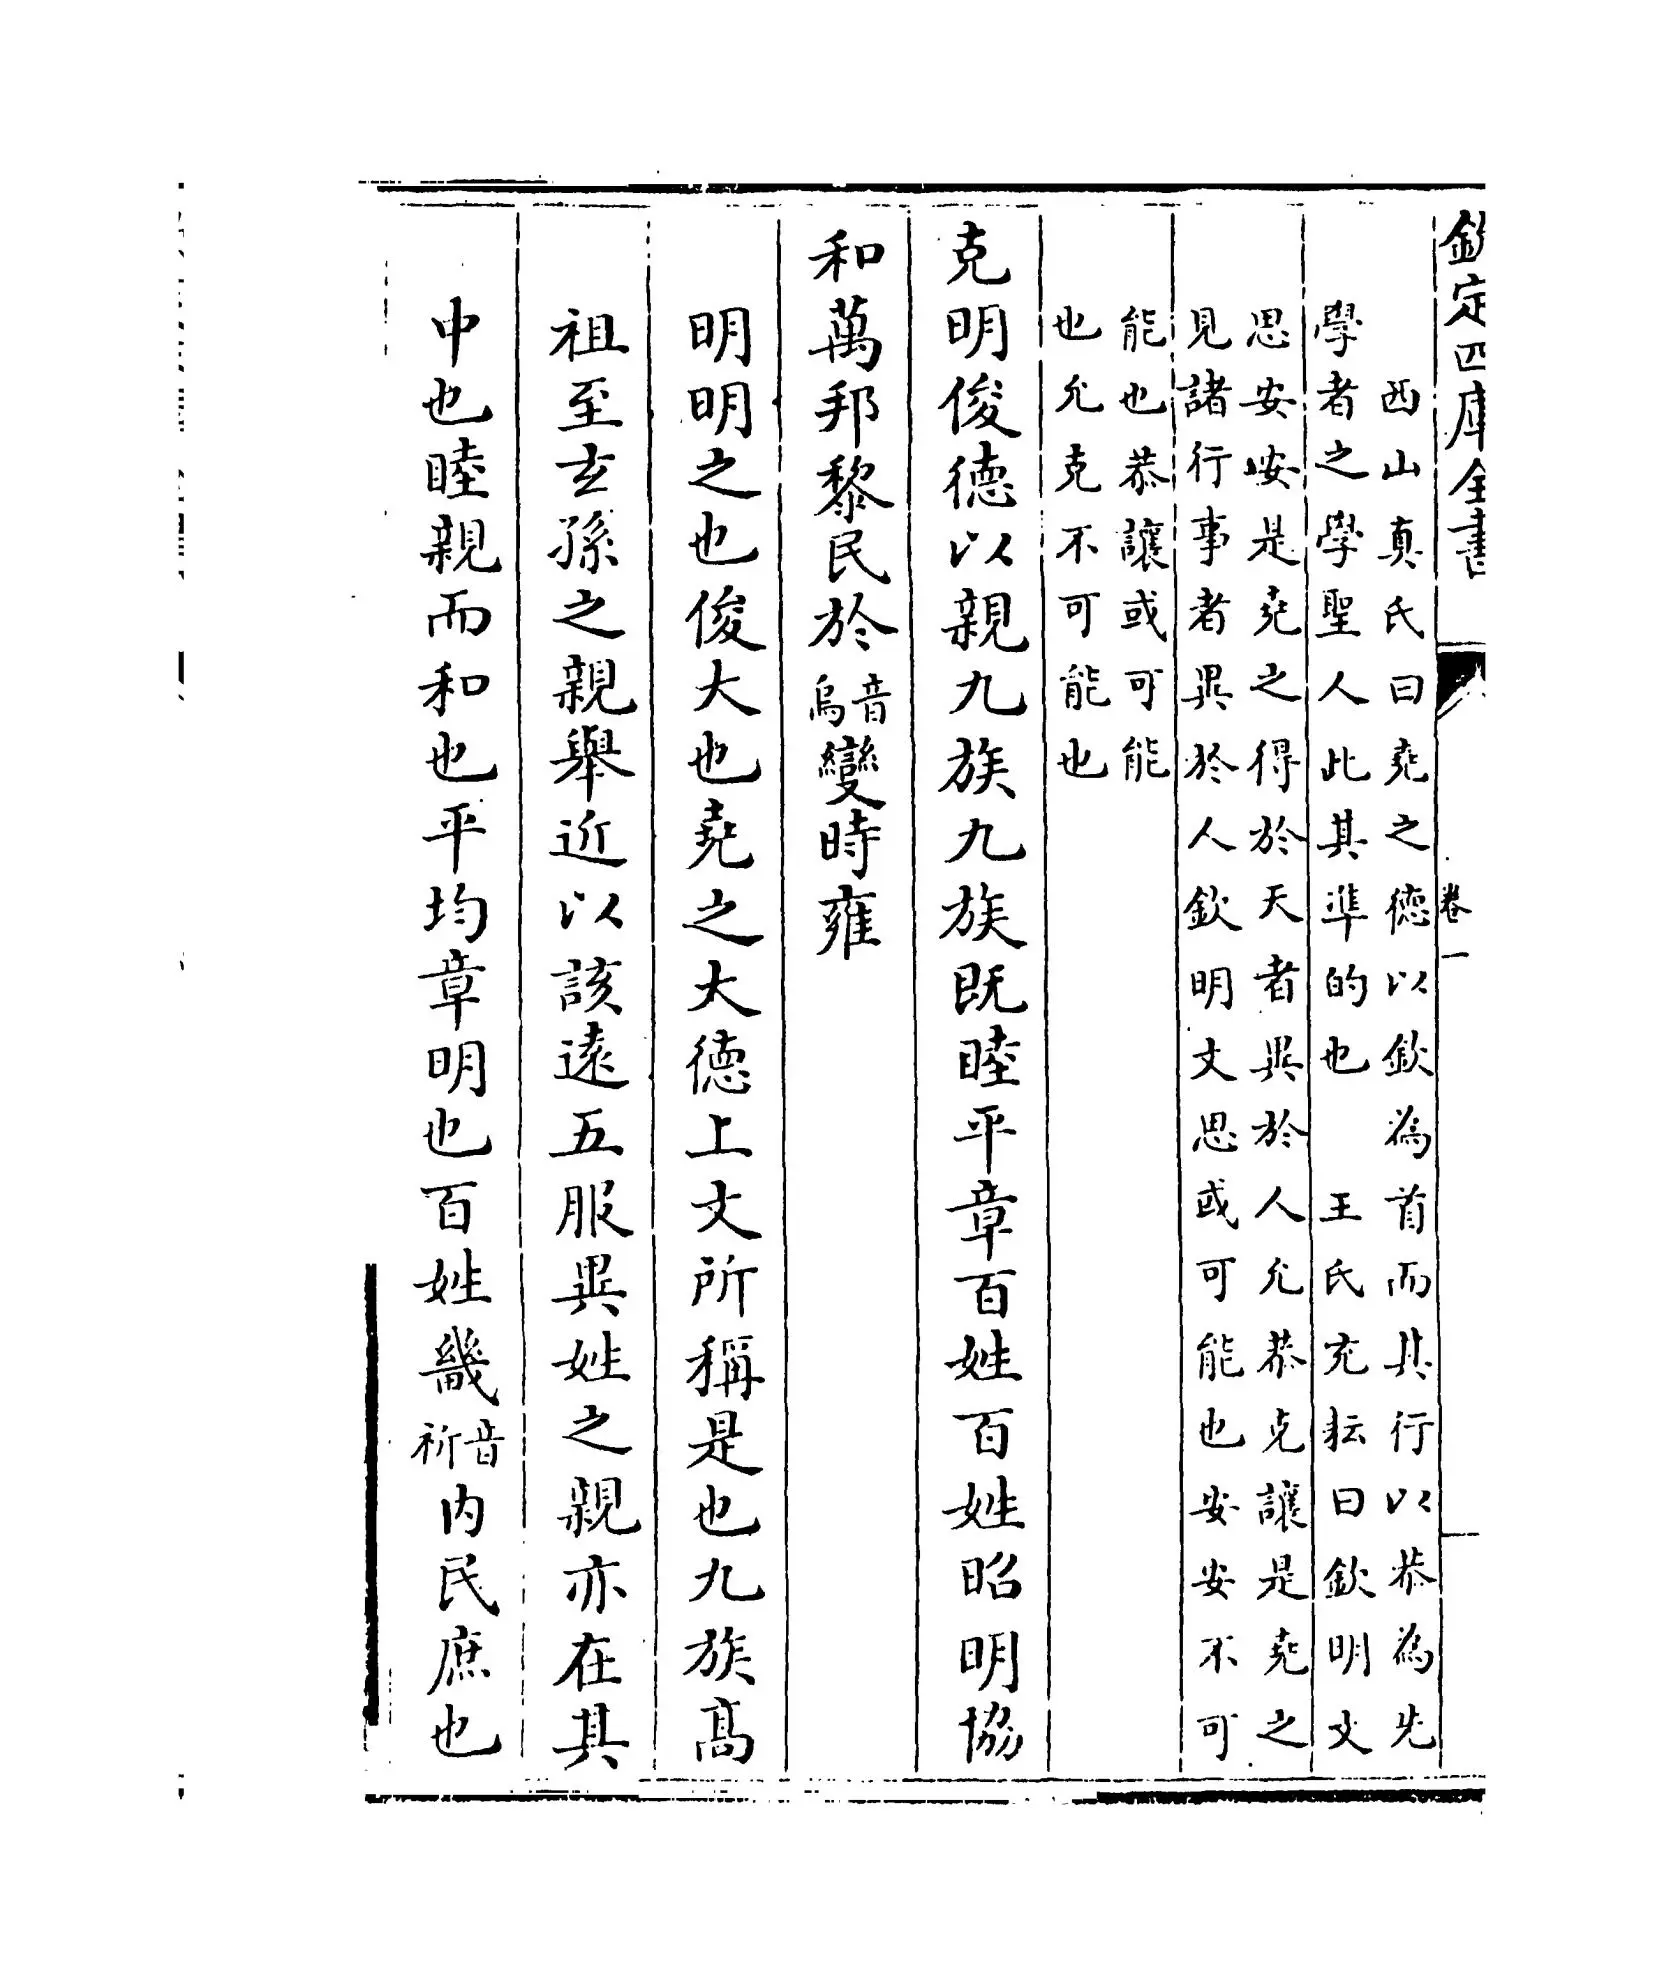 欽定四庫全書
卷一
西山真氏曰堯之德以欽為首而其行以恭為先
學者之學聖人此其準的也　王氏充耘曰欽明文
思安安是堯之得於天者異於人允恭克讓是堯之
見諸行事者異於人欽明文思或可能也安安不可
能也恭讓或可能
也允克不可能也
克明俊德以親九族九族既睦平章百姓百姓昭明協
和萬邦黎民於音烏變時雍
明明之也俊大也堯之大德上文所稱是也九族髙
祖至玄孫之親舉近以該遠五服異姓之親亦在其
中也睦親而和也平均章明也百姓畿音祈内民庶也